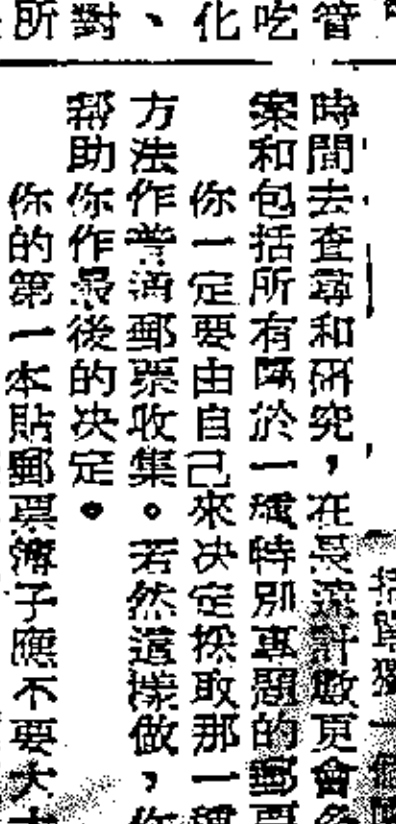 管
吃
化
、
對
所
單獨一個
時間去查尋和研究，在長遠計數頁會
案和包括所有關於一種特別專題的郵票
你一定要由自己來决定採取那一種
方法作普通郵票收集。若然這樣做，你
幫助你作最後的决定。
你的第一本貼郵票簿子應不要太